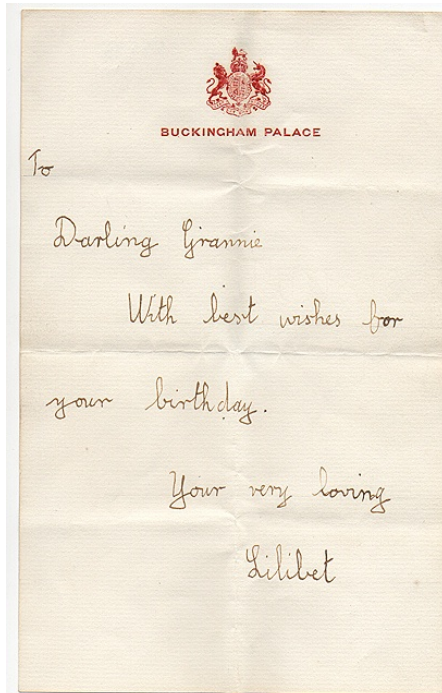 BUCKINGHAM PALACE
To
Darling Grannie
With best wishes for
your birthday.
Your very loving
Lilibet